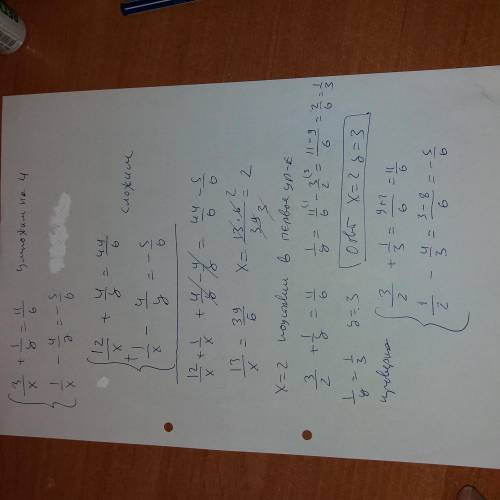 { 3/x + 1/y = 11/6 умножим на 4
1/x - 4/y = -5/6
{ 12/x + 4/y = 44/6
+ сложим
1/x - 4/y = -5/6
12/x + 1/x + 4/y - 4/y = 44/6 - 5/6
13/x = 39/6 x = 13·6/39 = 2
x = 2 подставим в первое ур-е
3/2 + 1/y = 11/6 1/y = 11/6 - 3/2 = 11-9/6 = 2/6 = 1/3
1/y = 1/3 y = 3 Ответ x = 2 y = 3
проверка
{ 3/2 + 1/3 = 9+2/6 = 11/6
1/2 - 4/3 = 3-8/6 = -5/6